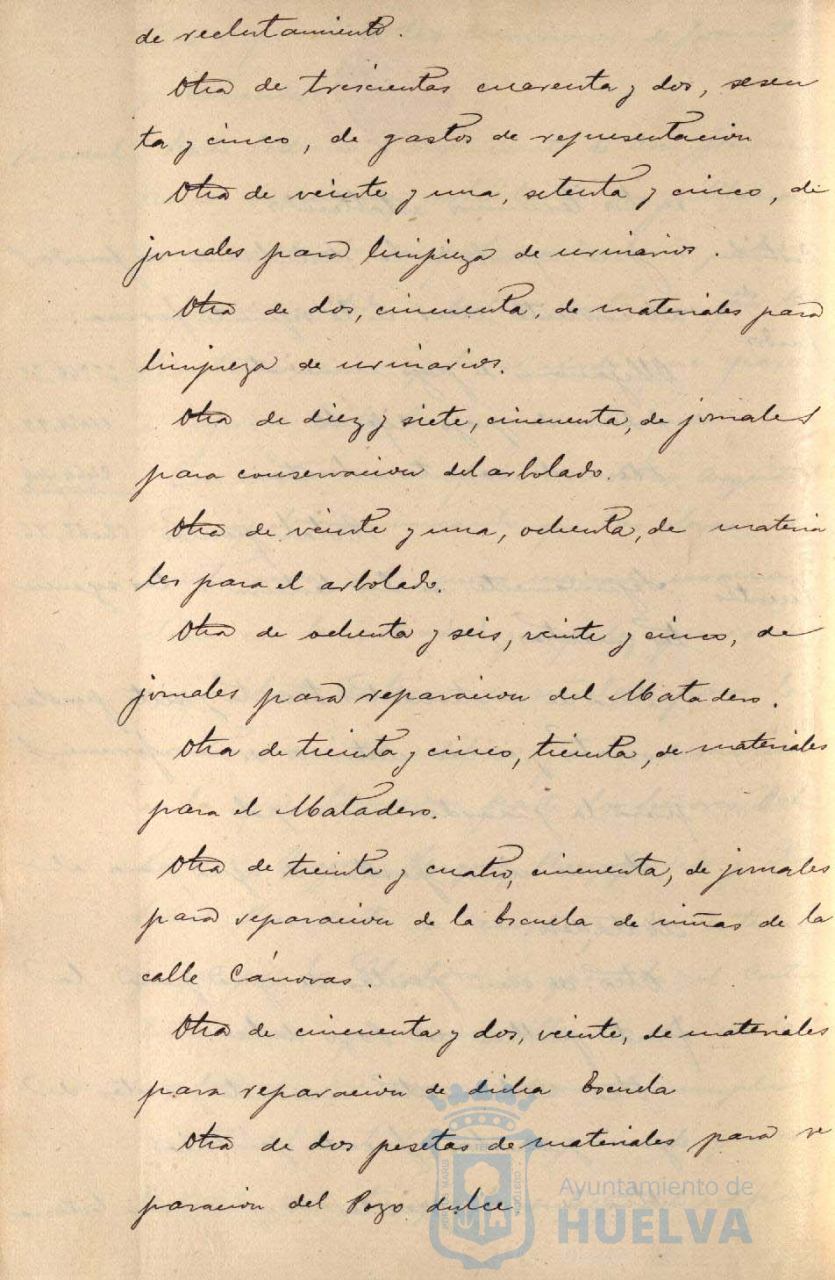 de reclutamiento.
Otra de trescientas cuarenta y dos, sesen
ta y cinco, de gastos de representacion
Otra de veinte y una, setenta y cinco, de
jornales para limpieza de urinarios.
Otra de dos, cincuenta, de materiales para
limpieza de urinarios.
Otra de diez y siete, cincuenta, de jornales
para conservacion del arbolado.
Otra de veinte y una, ochenta, de materia
les para el arbolado.
Otra de ochenta y seis, veinte y cinco, de
jornales para reparacion del Matadero.
Otra de treinta y cinco, treinta, de materiales
para el Matadero.
Otra de treinta y cuatro, cincuenta, de jornales
para reparacion de la Escuela de niñas de la
calle Cánovas.
Otra de cincuenta y dos, veinte, de materiales
para reparacion de dicha Escuela
Otra de dos pesetas de materiales para re
paracion del Pozo dulce
Ayuntamiento de
HUELVA